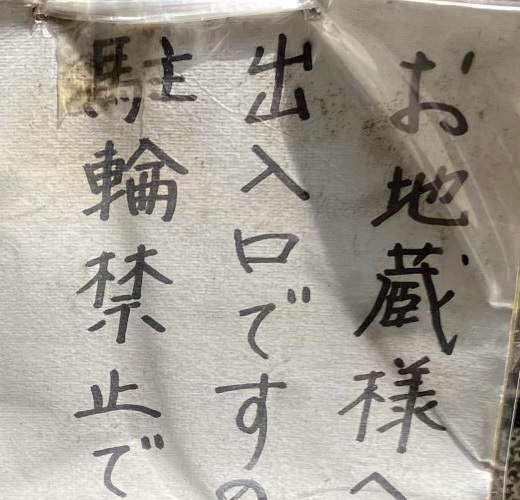 お地蔵様へ
出入口ですの
駐輪禁止で